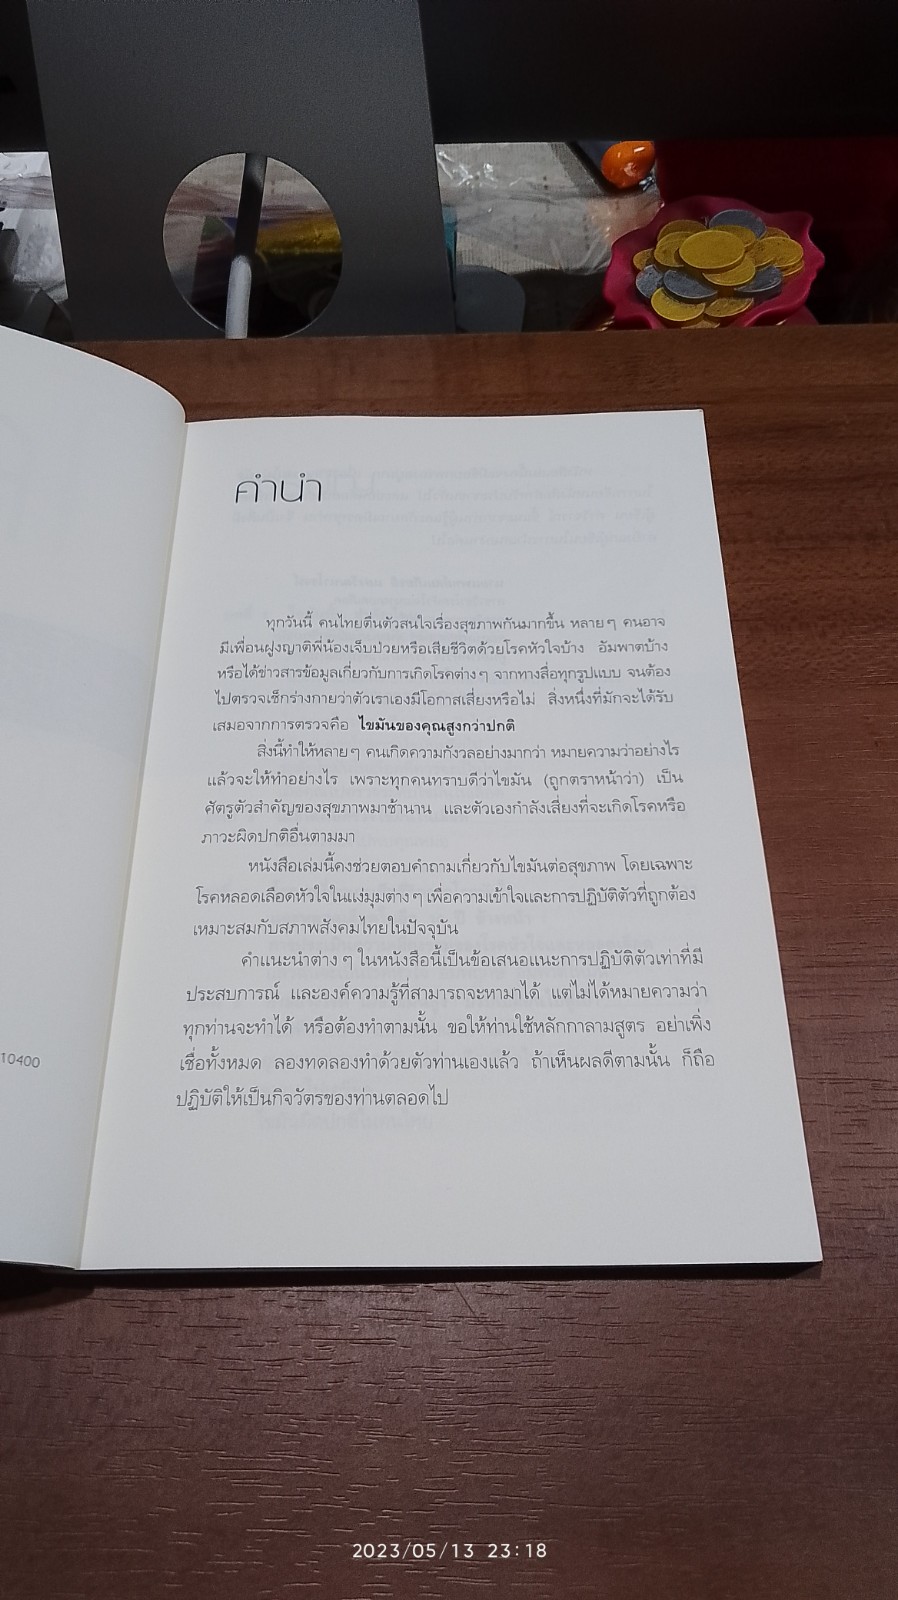 คำนำ
ทุกวันนี้ คนไทยตื่นตัวสนใจเรื่องสุขภาพกันมากขึ้น หลายๆ คนอาจ
มีเพื่อนฝูงญาติพี่น้องเจ็บป่วยหรือเสียชีวิตด้วยโรคหัวใจบ้าง อัมพาตบ้าง
หรือได้ข่าวสารข้อมูลเกี่ยวกับการเกิดโรคต่างๆ จากทางสื่อทุกรูปแบบ จนต้อง
ไปตรวจเช็กร่างกายว่าตัวเราเองมีโอกาสเสี่ยงหรือไม่ สิ่งหนึ่งที่มักจะได้รับ
เสมอจากการตรวจคือ ไขมันของคุณสูงกว่าปกติ
สิ่งนี้ทำให้หลายๆ คนเกิดความกังวลอย่างมากว่า หมายความว่าอย่างไร
แล้วจะให้ทำอย่างไร เพราะทุกคนทราบดีว่าไขมัน (ถูกตราหน้าว่า) เป็น
ศัตรูตัวสำคัญของสุขภาพมาช้านาน และตัวเองกำลังเสี่ยงที่จะเกิดโรคหรือ
ภาวะผิดปกติอื่นตามมา
หนังสือเล่มนี้คงช่วยตอบคำถามเกี่ยวกับไขมันต่อสุขภาพ โดยเฉพาะ
โรคหลอดเลือดหัวใจในแง่มุมต่างๆ เพื่อความเข้าใจและการปฏิบัติตัวที่ถูกต้อง
เหมาะสมกับสภาพสังคมไทยในปัจจุบัน
คำแนะนำต่าง ๆ ในหนังสือนี้เป็นข้อเสนอแนะการปฏิบัติตัวเท่าที่มี
ประสบการณ์ และองค์ความรู้ที่สามารถจะหามาได้ แต่ไม่ได้หมายความว่า
ทุกท่านจะทำได้ หรือต้องทำตามนั้น ขอให้ท่านใช้หลักกาลามสูตร อย่าเพิ่ง
เชื่อทั้งหมด ลองทดลองทำด้วยตัวท่านเองแล้ว ถ้าเห็นผลดีตามนั้น ก็ถือ
ปฏิบัติให้เป็นกิจวัตรของท่านตลอดไป
10400
2023/05/13 23:18